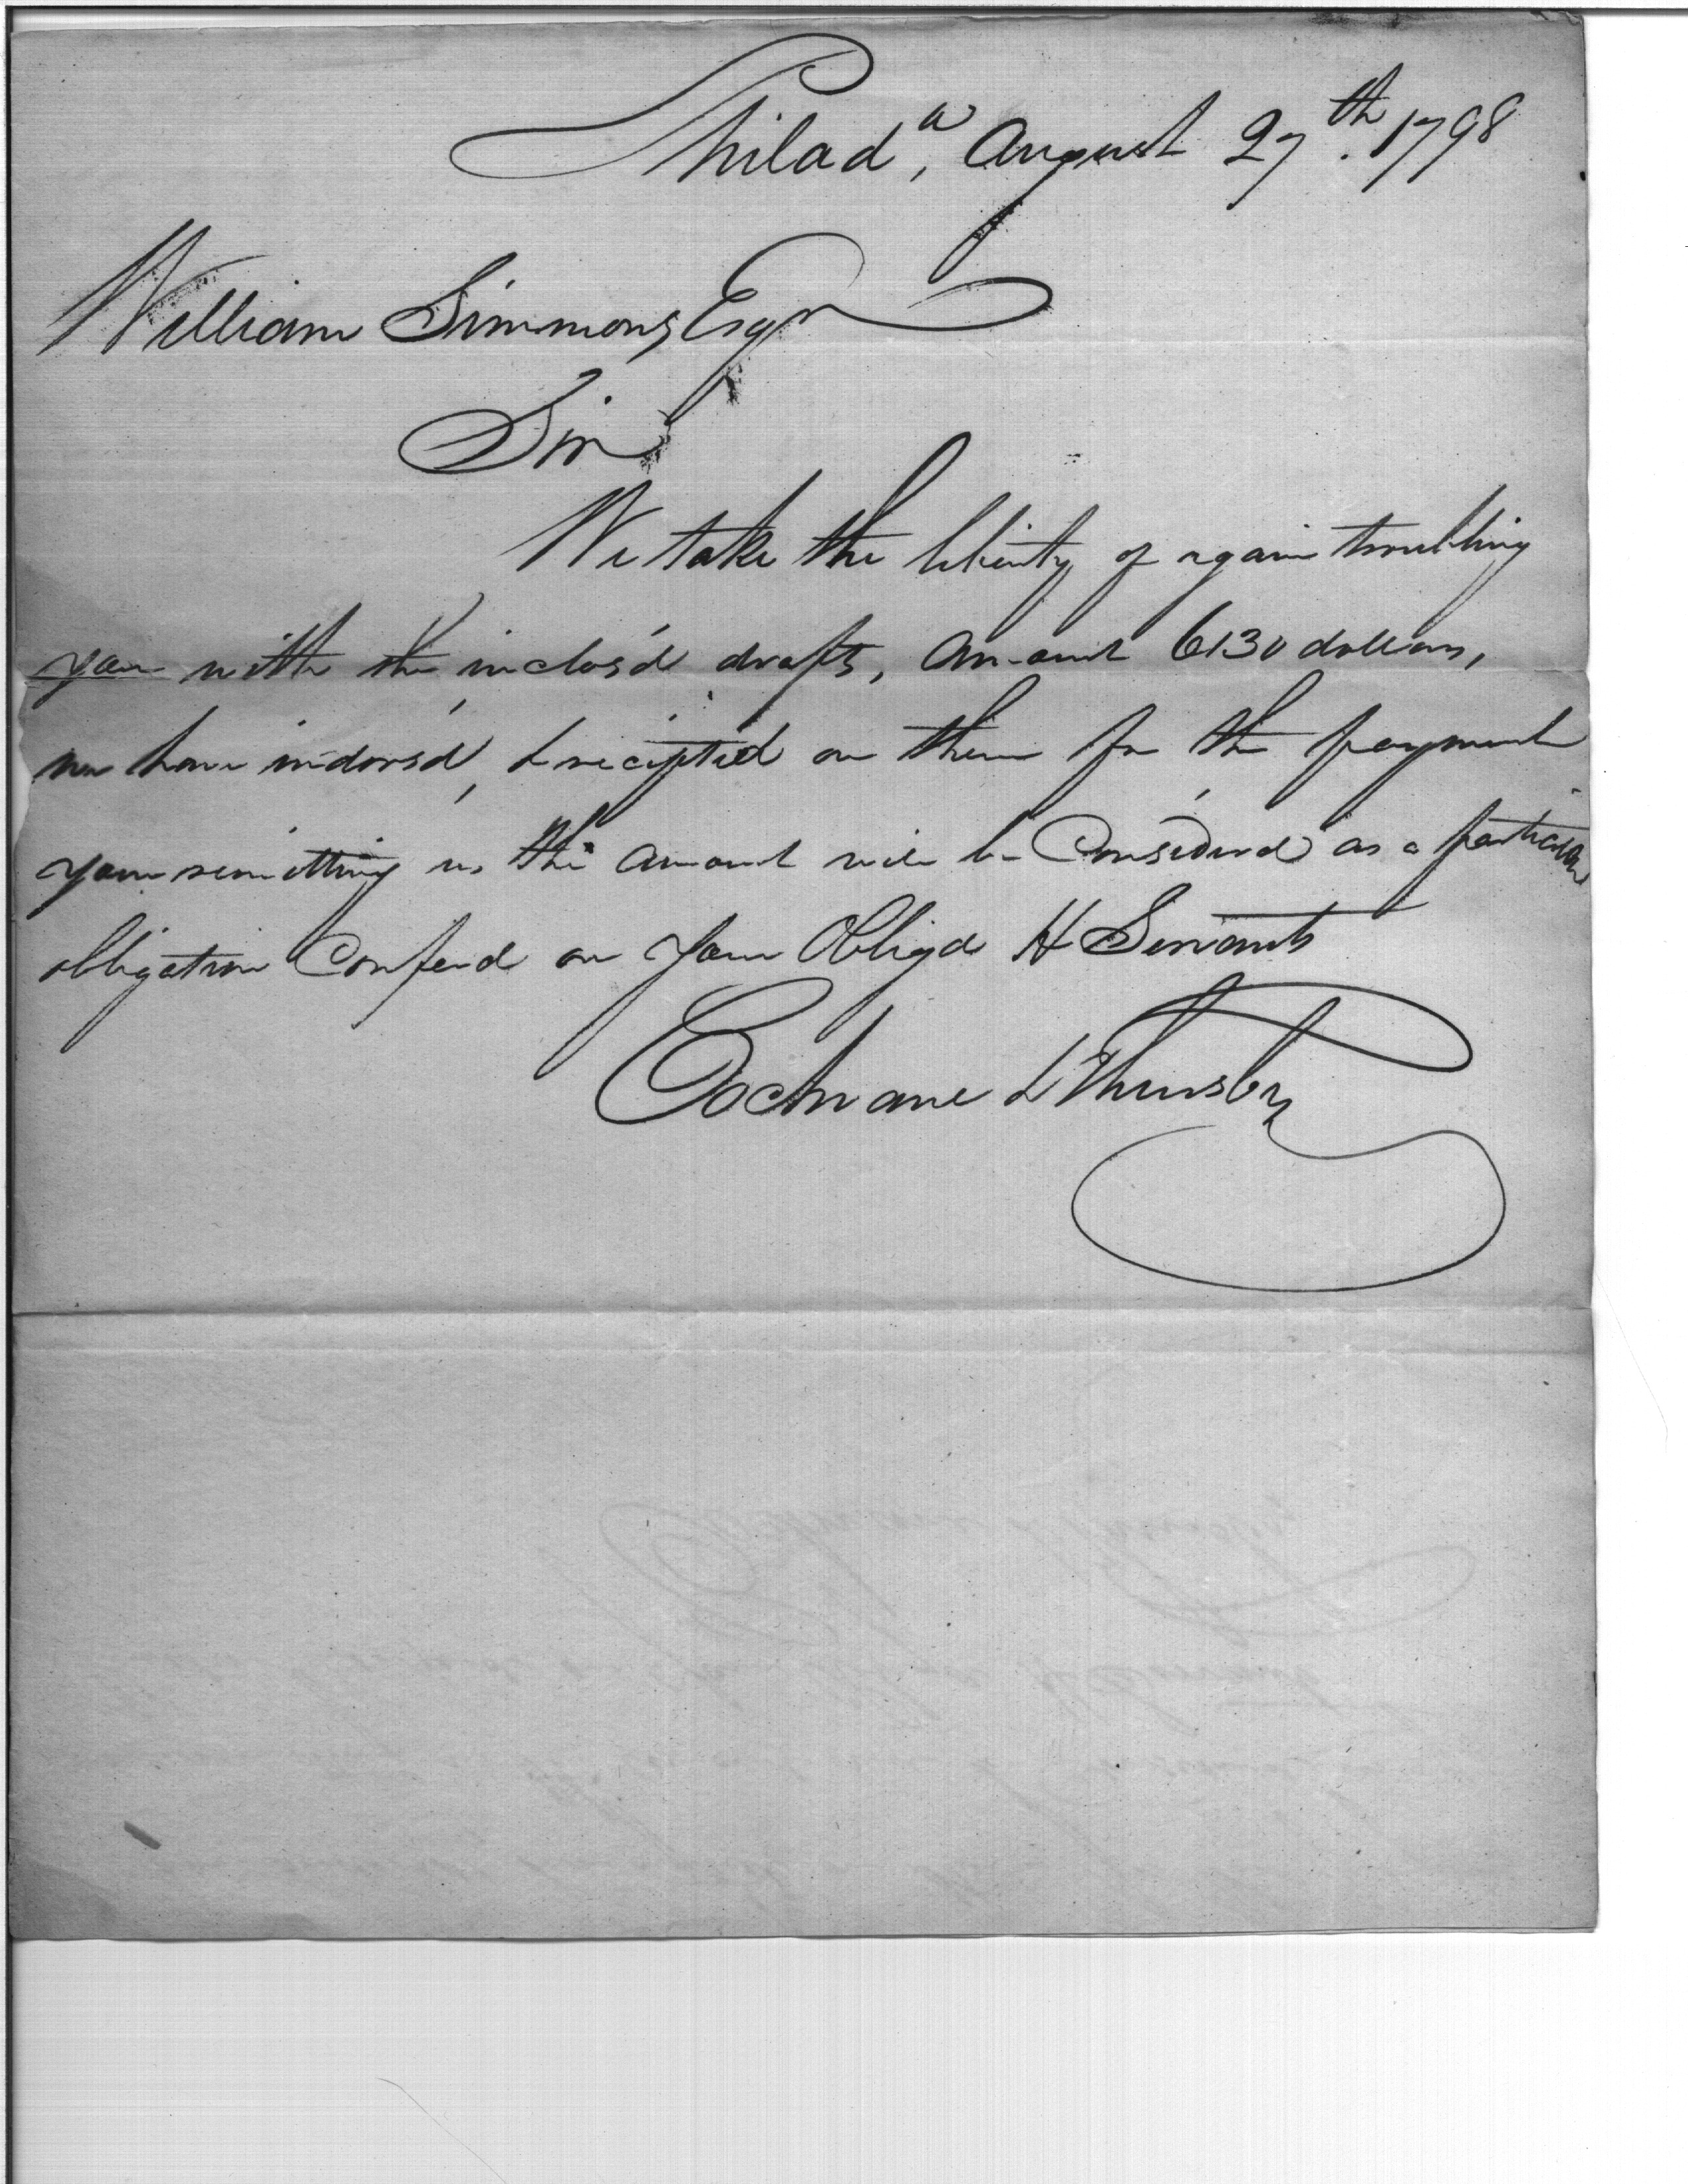 Philad.a, August 27th. 1798
William Simmons, Esqr
Sir
We take the liberty of again troubling
you with the inclos'd drafts, Amount 6130 dollars,
we have indors'd, & reciepted on them for the payment
your remitting us the amount will be Considered as a particular
obligation Conferd on Your Obligd H Servants
Cochrane & Thursby